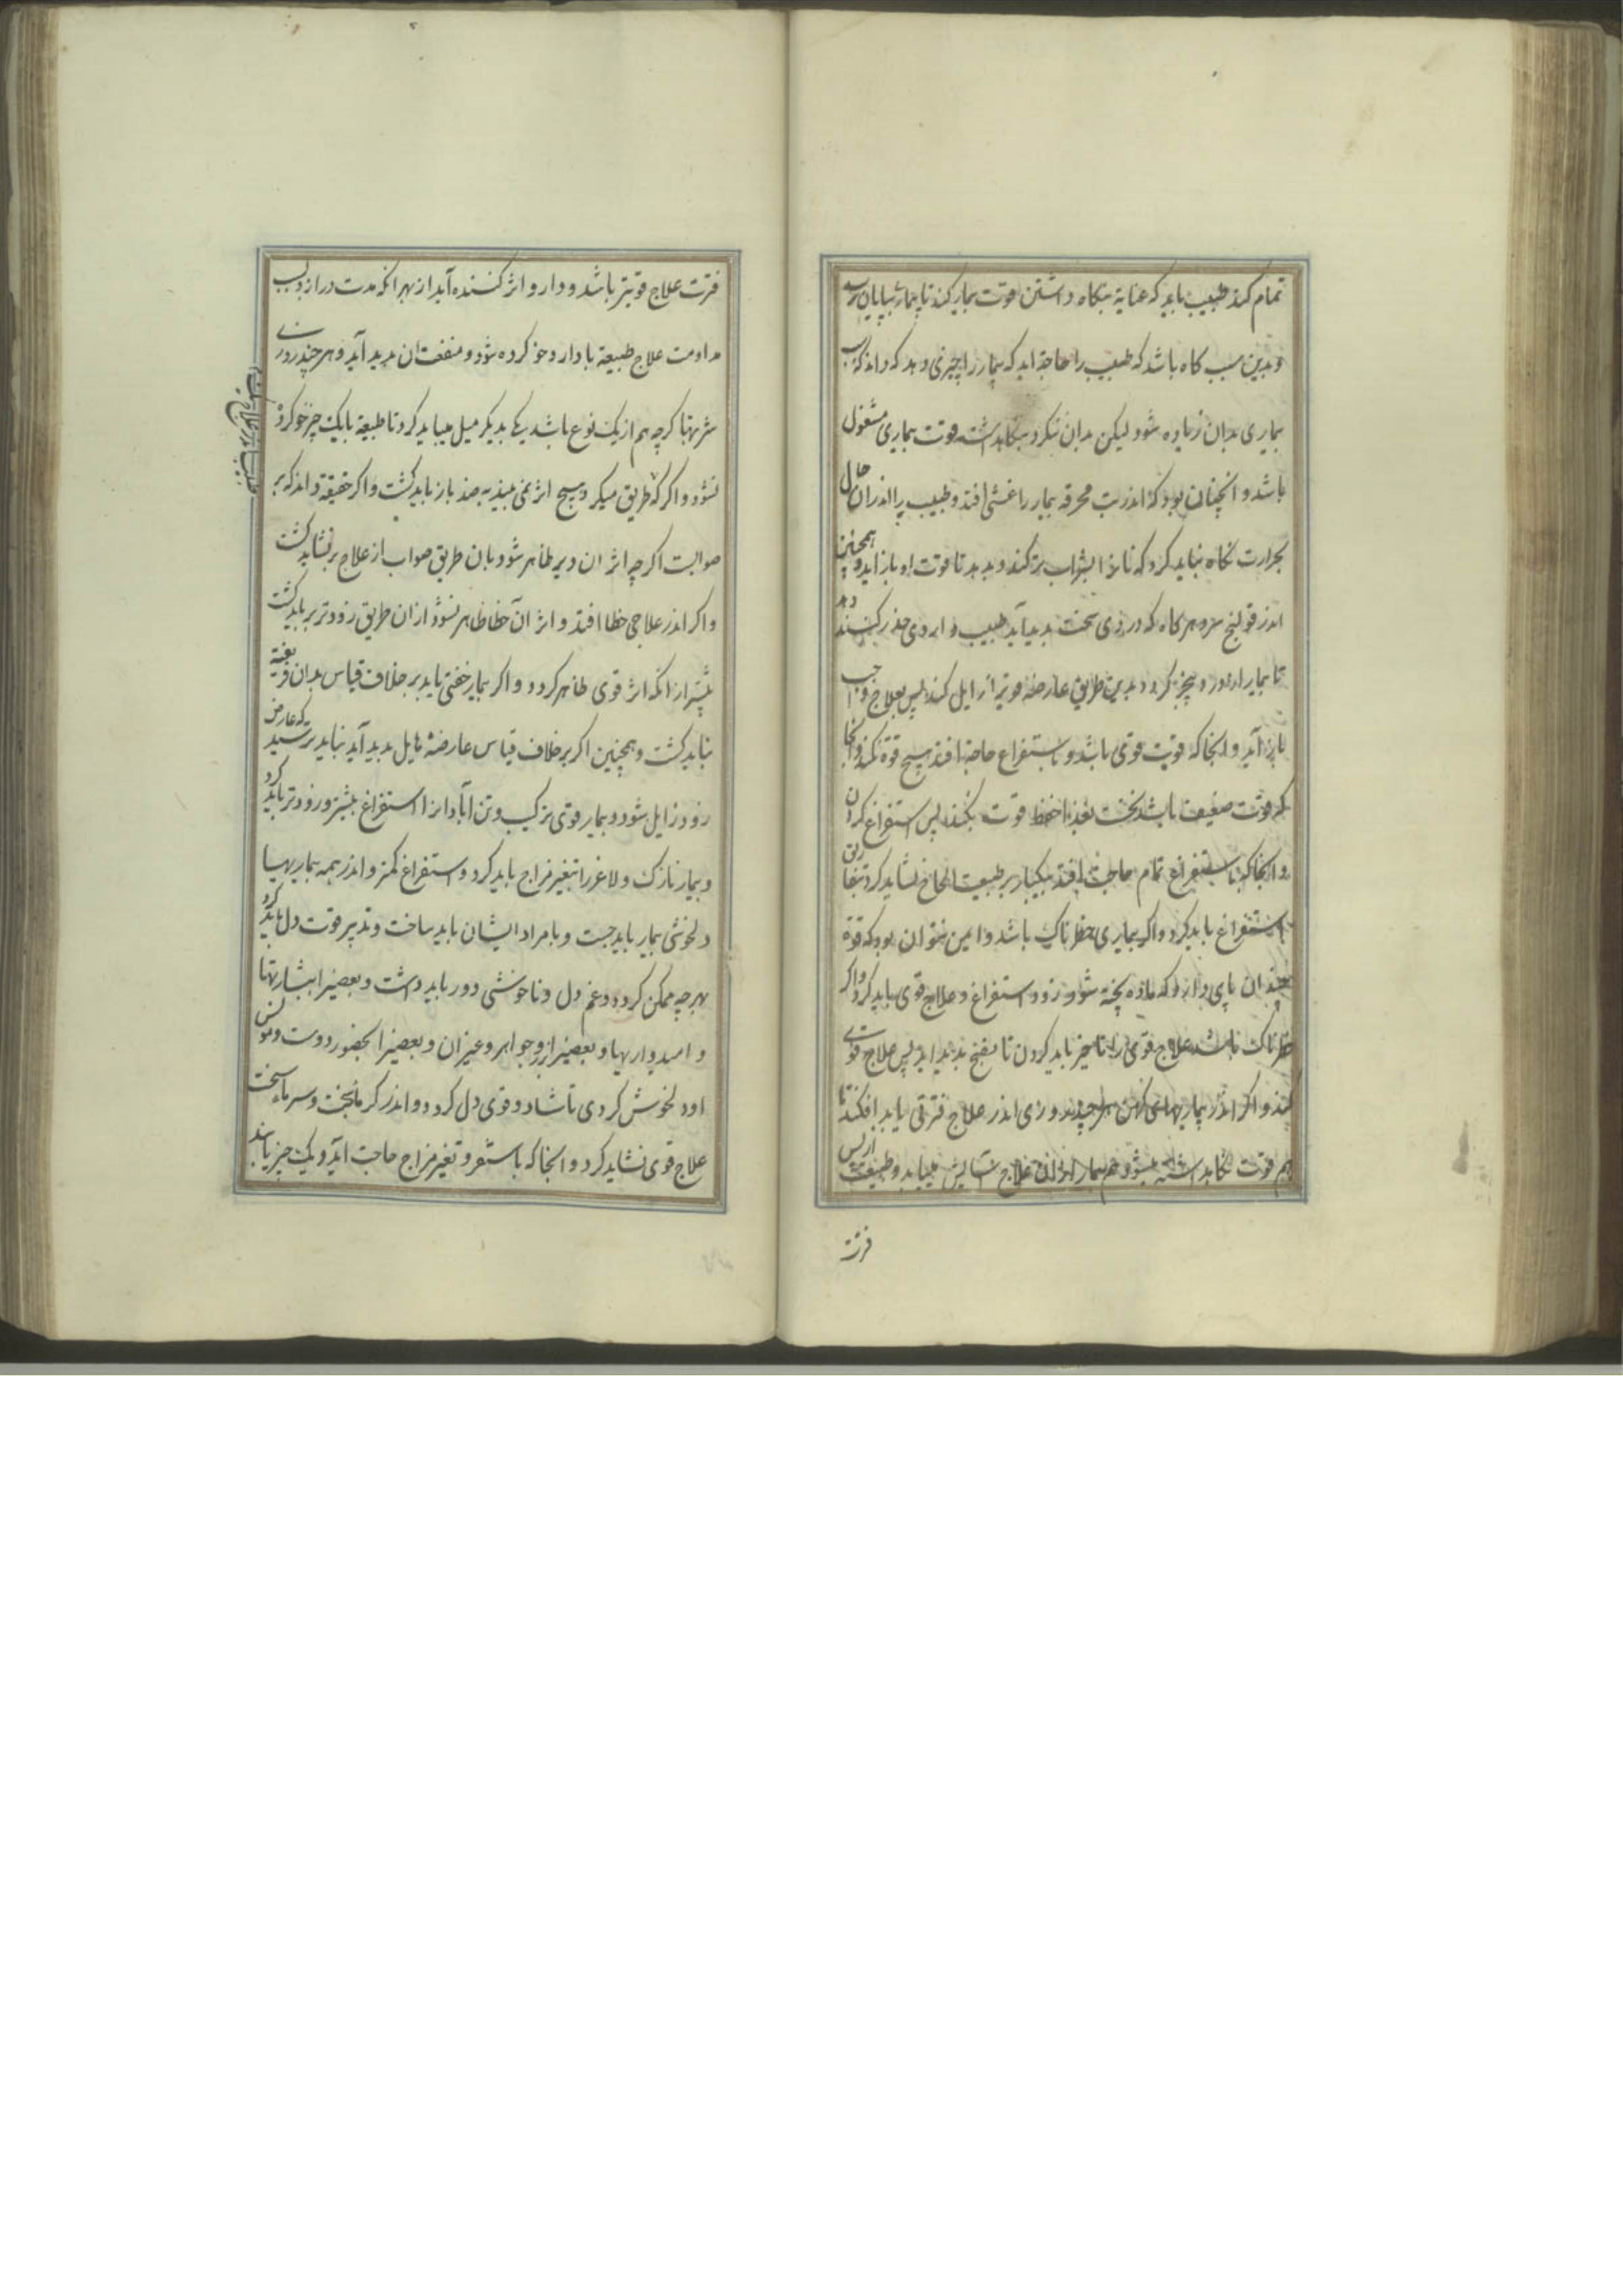 تمام کند طبیب باید که عنایة بنکاه داشتن قوت بیمار کند تا بیمار بپایان رسد
و بدین سبب کاه باشد که طبیب را حاجة اید که بیمار را چیزی دهد که داند که سبب
بیماری بدان زیاده شود لیکن بدان ننکرد بنکاهداشت قوت بیماری مشغول
باشد و انچنان بود که اندر تب محرقه بیمار را غشی افتد و طبیب را اندران حال
بحرارت نکاه نباید کرد که نان را بشراب تر کند و بدهد تا قوت او باز اید و همچنین
اندر قولنج سرد هر کاه که دردی سخت بدید آید طبیب داروی مخدر کننده دهد
تا بیمار از درد بیخبر کردد بدین طریق عارضه قویتر زایل کند پس بعلاج واجب
باز آید و انجا که قوت قوی باشد و باستفراع حاجة افتد هیچ توقف نکند و انجا
که قوت ضعیف باشد نخست بغذا حفظ قوت بکند پس استفراغ کردن
و انجا که باستفراغ تمام حاجت افتد بیکبار بر طبیعت الحاح نشاید کرد بتفاریق
استفراغ باید کرد و اکر بیماری خطرناک باشد و ایمن نتوان بود که قوة
چندان پای دارد که ماده پخته شود زود استفراغ و علاج قوی باید کرد و اکر
خطرناک نباشد علاج قوی را تاخیر باید کردن تا نضج بدید اید پس علاج قوی
کند و اکر اندر بیماریهای کهن هر چند روزی اندر علاج فترتی باید افکند تا
هم قوت نکاهداشته شود و هم بیمار از ان علاج آسایش بیابد و طبیعت از پس
فترت
فترت علاج قویتر باشد و دارو اثر کننده آید از بهر انکه مدت دراز بسبب
مداومت علاج طبیعة با دارو خو کرده شود و منفعت ان بدید آید و هر چند روزی
شربتها کرچه هم از یک نوع باشد یکی بدیکر میل میباید کرد تا طبیعة با یک چیز خو کرده
نشود و اکر که طریق میکیرد و هیچ اثر نمی بیند بضد باز باید کشت و اکر حقیقة داند که بر
صوابست اکر چه اثر ان دیر ظاهر شود بان طریق صواب از علاج بر نشاید کشت
و اکر اندر علاجی خطا افتد و اثر آن خطا ظاهر نشود از ان طریق زودتر بر باید کشت
بیشتر از انکه اثر قوی ظاهر کردد و اکر بیمار خفتی یابد بر خلاف قیاس بدان فریفته
نباید کشت و همچنین اکر بر خلاف قیاس عارضهٔ هایل بدید آید نباید ترسید که عارض
زود زایل شود و بیمار قوی ترکیب و تن آبادانرا استفراغ بیشتر و زودتر باید کرد
و بیمار نازک و لاغر را تغیر مزاج باید کرد و استفراغ کمتر و اندر همه بیماریها
دلخوشی بیمار باید جست و با مراد ایشان باید ساخت و تدبیر قوت دل باید کرد
بهر چه ممکن کردد و غم دل و ناخوشی دور باید داشت و بعضی را ببشارتها
و امیدواریها و بعضی را بزر و جواهر و غیر ان و بعضی را بحضور دوست و مونس
او دلخوش کردی تا شاد و قوی دل کردد و اندر کرمای سخت و سرمای سخت
علاج قوی نشاید کرد و انجا که باستفراغ و تغیر مزاج حاجت آید و یک چیز یابند